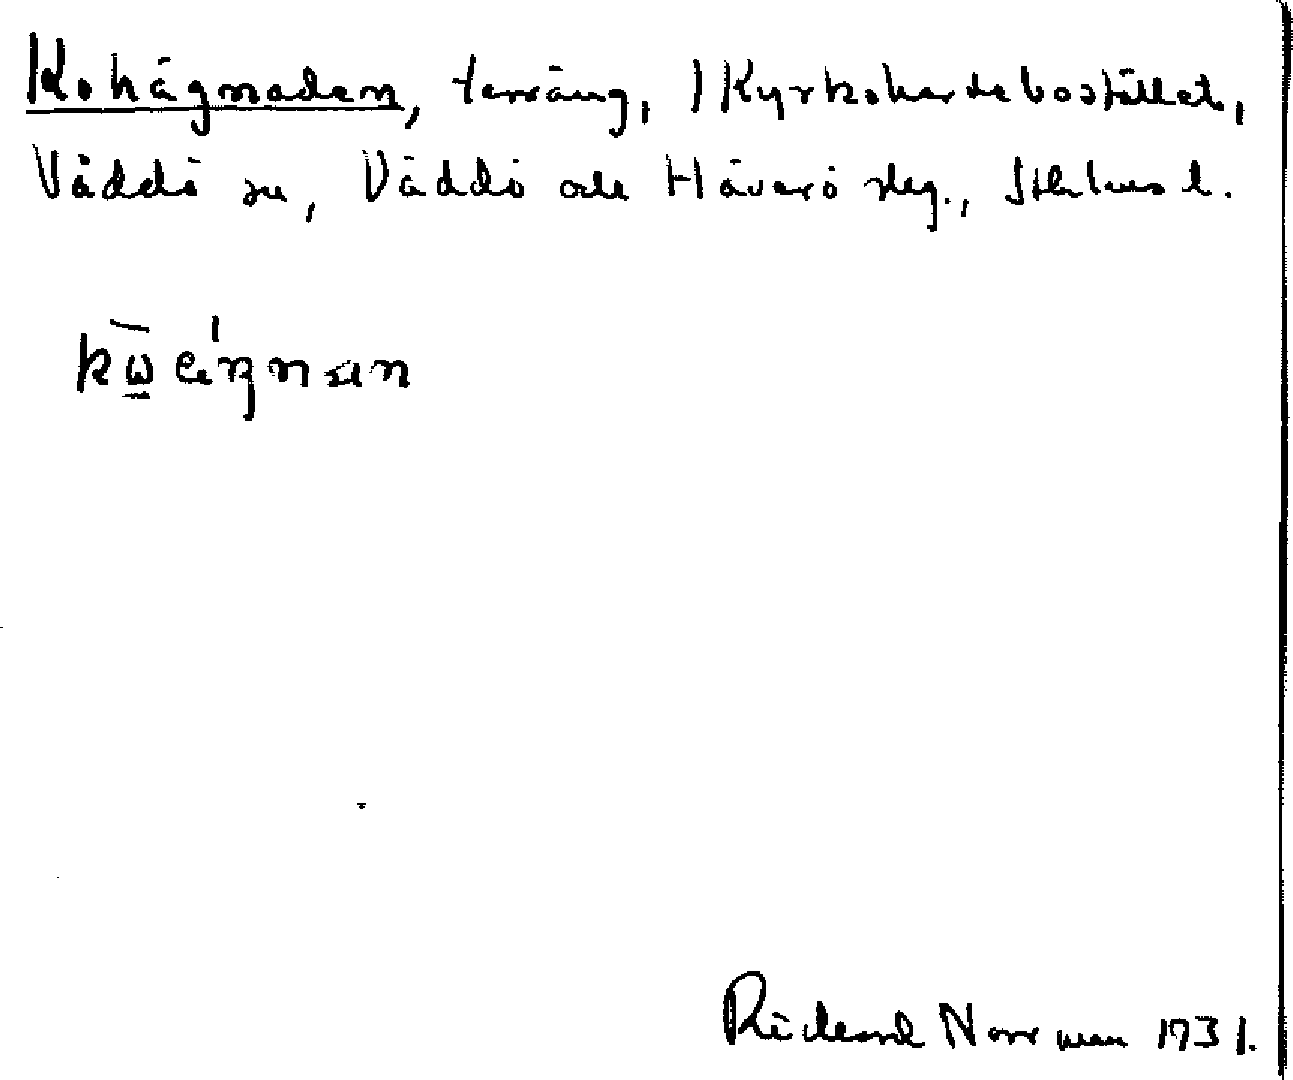 Kohägmaden, terräng, 1 Kyrkoherdebostället,
Väddö sn, Väddö och Häverö skg., Sthlms l.
Richard Norrman 1931.